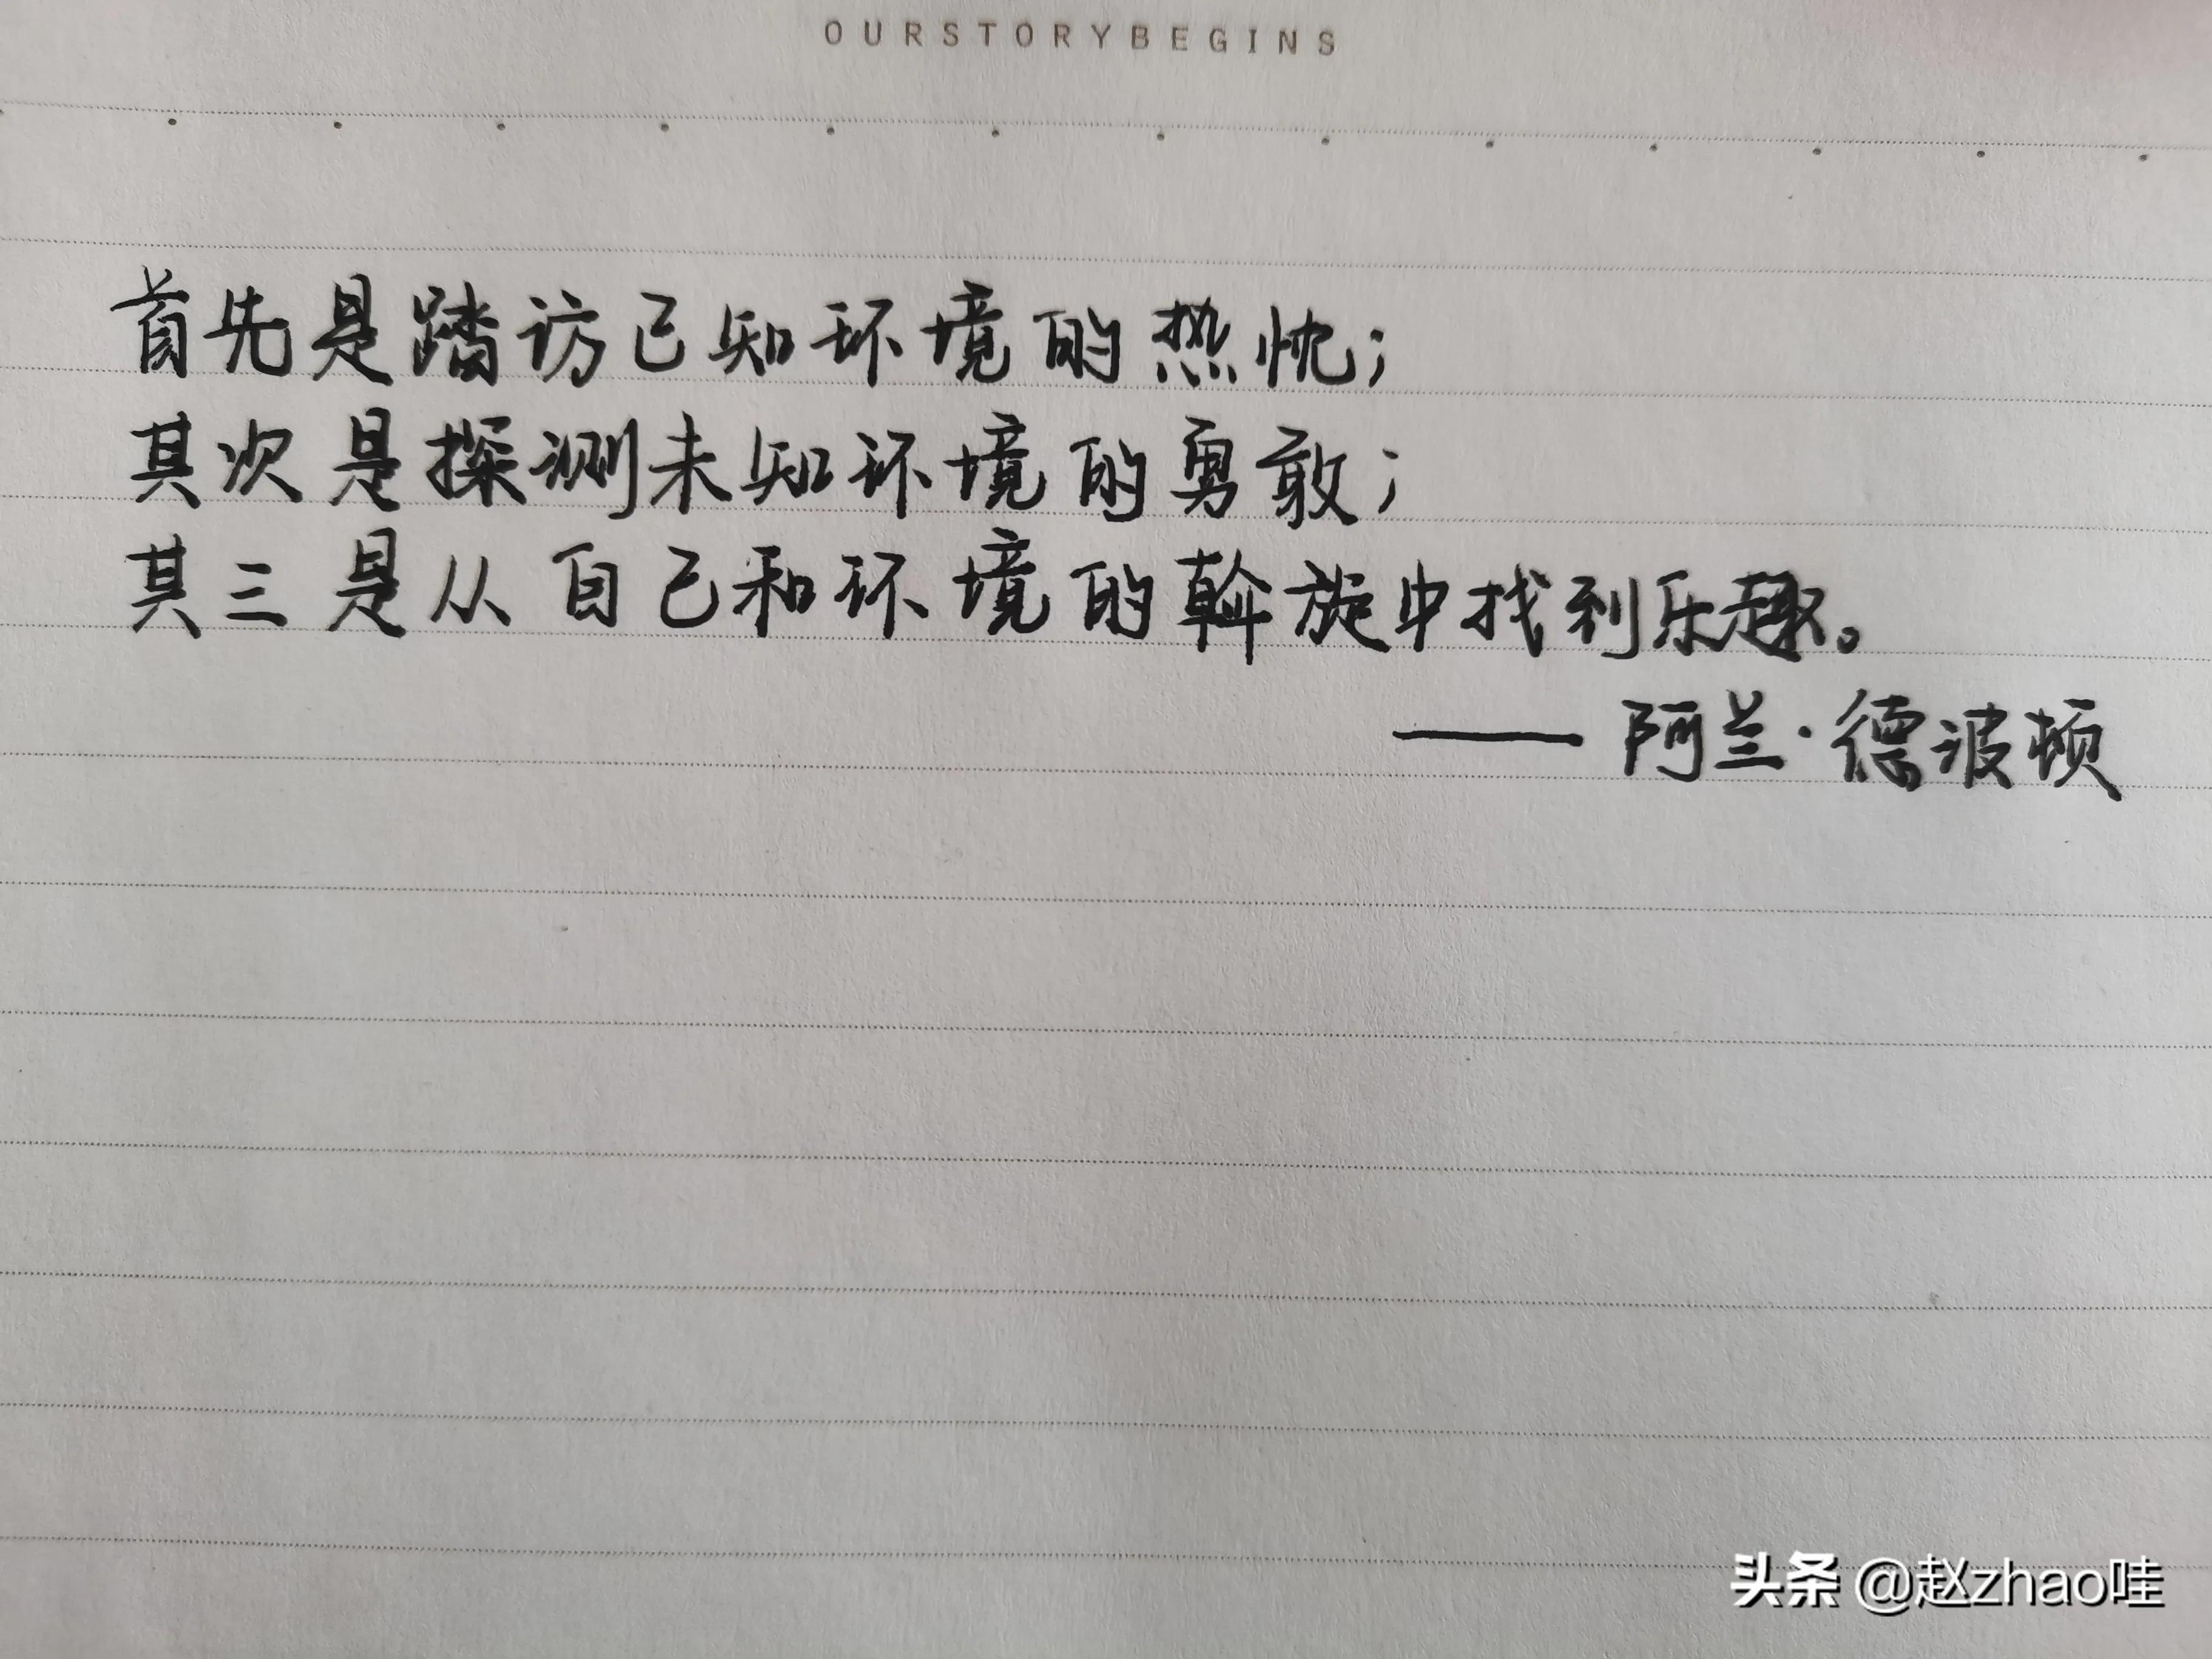 OURSTORYBEGINS
首先是踏访已知环境的热忱;
其次是探测未知环境的勇敢;
其三是从自己和环境的斡旋中找到乐趣。
——阿兰·德波顿
头条 @赵zhao哇